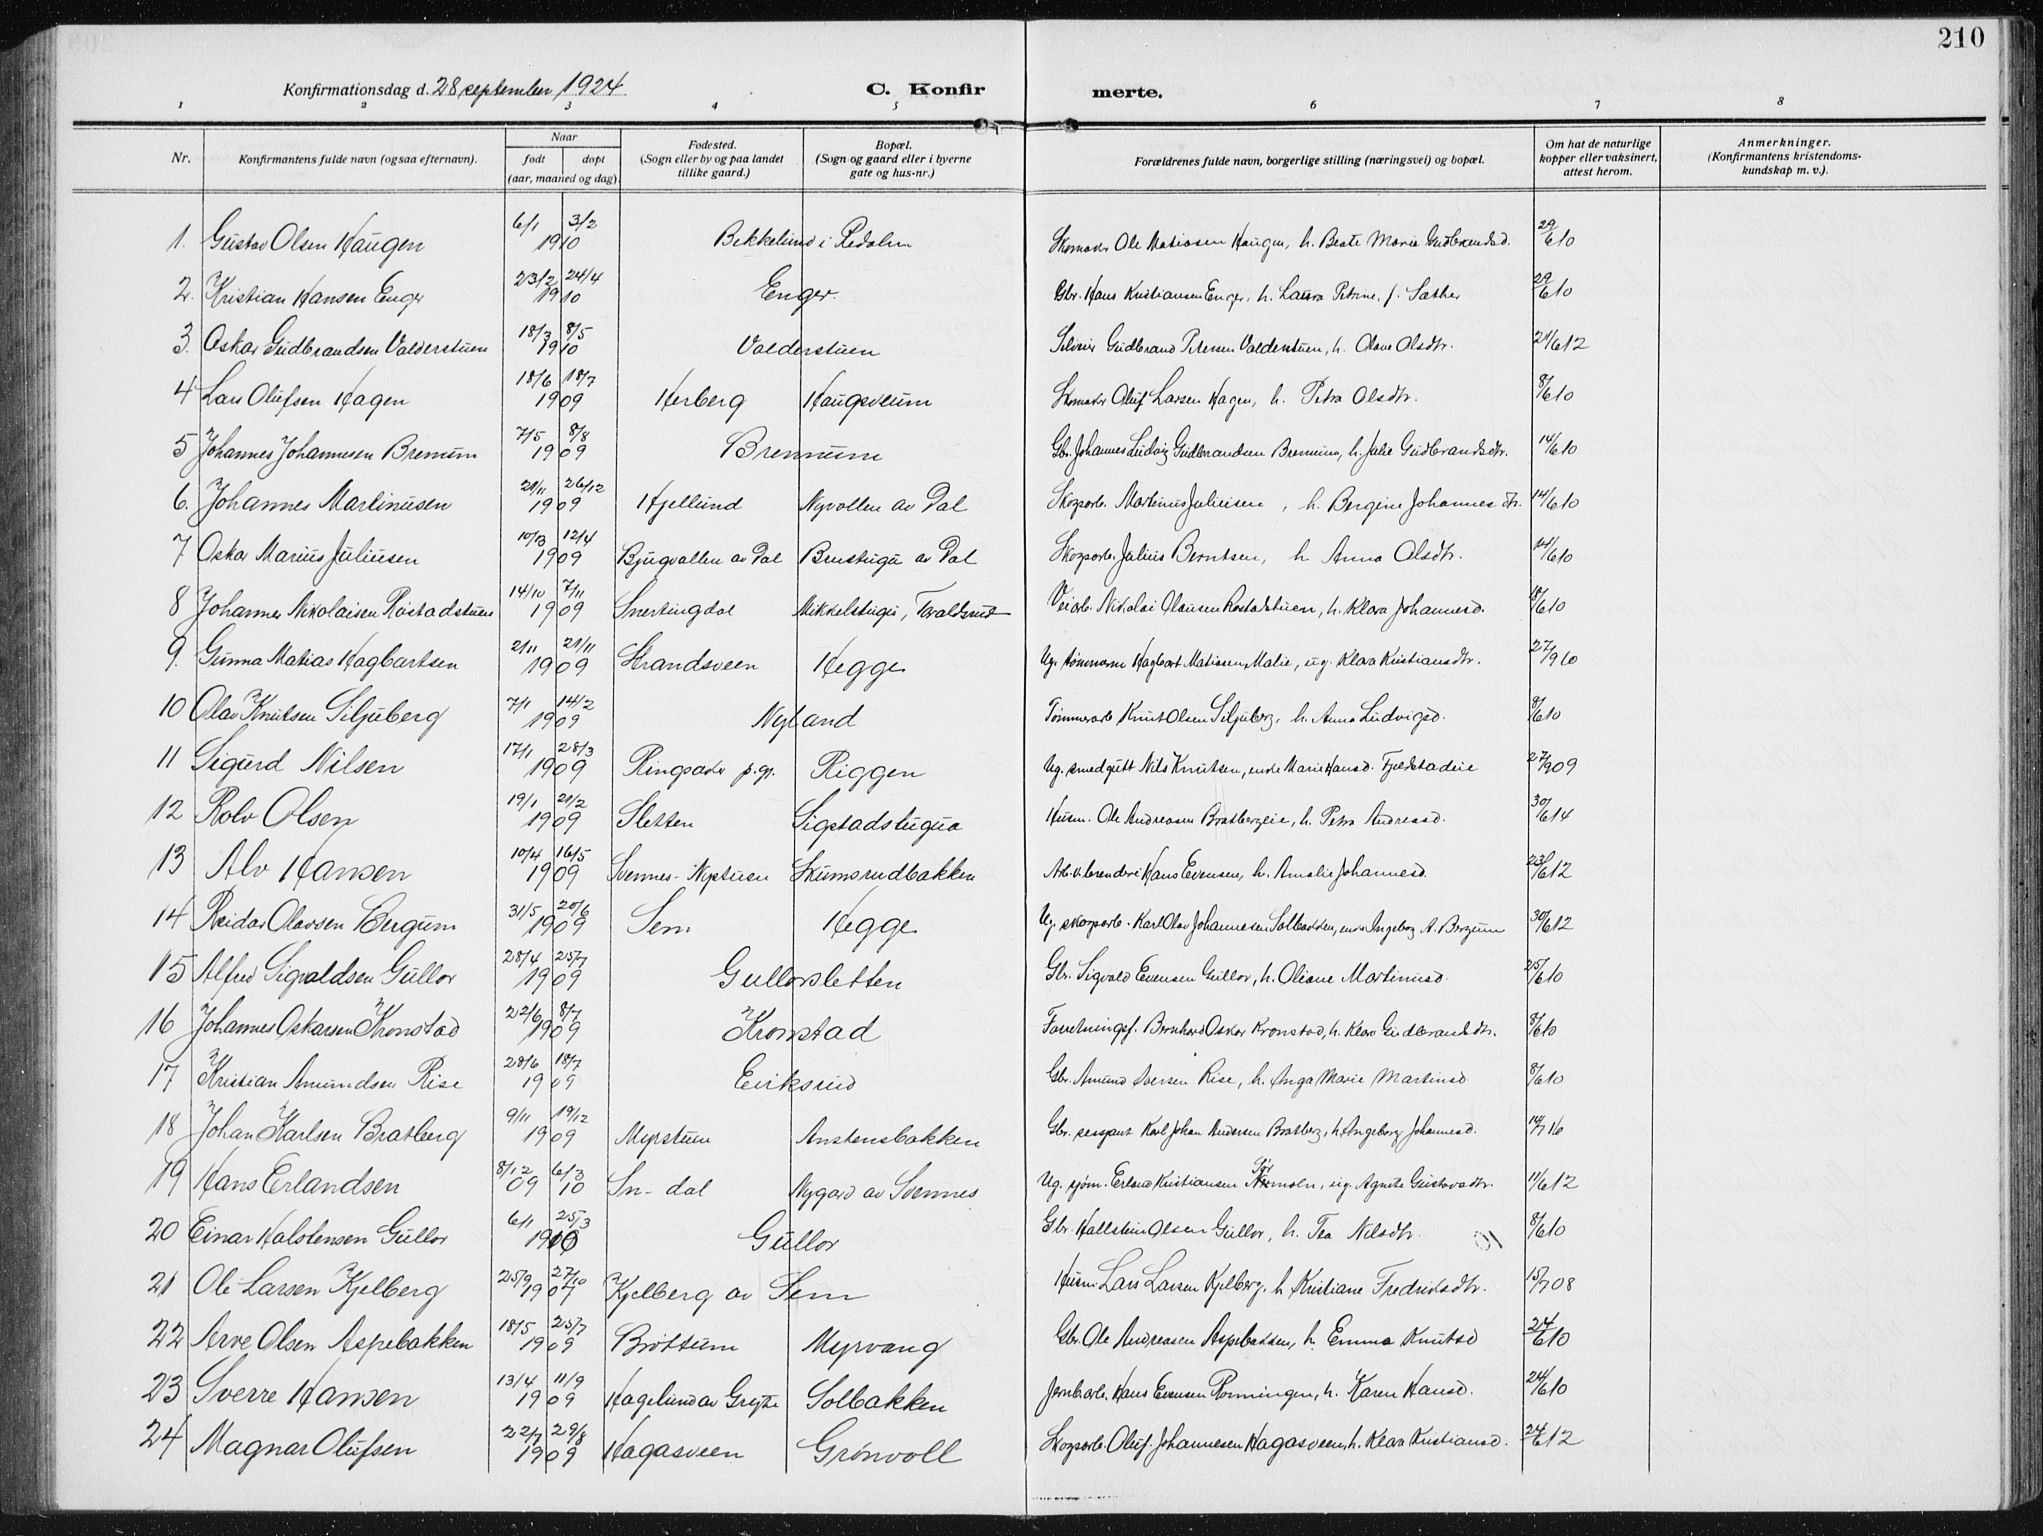 210
Konfirmationsdag d. 28 september 1924 C. Konfir merte.
1 2 3 4 5 6 7 8
Nr. Konfirmantens fulde navn (ogsaa efternavn). Naar født døpt (aar, maaned og dag). Fødested. (Sogn eller by og paa landet tillike gaard.) Bopæl. (Sogn og gaard eller i byerne gate og hus-nr.) Forældrenes fulde navn, borgerlige stilling (næringsvei) og bopæl. Om hat de naturlige kopper eller vaksinert, attest herom. Anmerkninger. (Konfirmantens kristendomskundskap m. v.).
1. Gustav Olsen Haugen 6/1 3/2 1910 Bekkelund i Redalen Skomaker Ole Matiasen Haugen, h. Beate Marie Gudbrandsd. 29/6 10
2. Kristian Hansen Enger 23/2 24/4 1910 Enger. Gbr. Hans Kristiansen Enger, h. Laura Petrine, f. Sæther 29/6 10
3. Oskar Gudbrandsen Valderstuen 18/3 8/5 1910 Valderstuen Gudbrand Petersen Valderstuen, h. Olave Olsdtr. 24/6 12
4 Lars Olufsen Hagen 18/6 18/7 1909 Herberg Haugsveum Skomaker Oluf Larsen Hagen, h. Petra Olsdtr. 8/6 10
5 Johannes Johannesen Bremum 7/5 8/8 1909 Bremum Gbr. Johannes Ludvig Gudbrandsen Bremum, h. Julie Gudbrandsdtr. 14/6 10
6. Johannes Martinusen 21/11 26/12 1909 Hjellund Nyvollen av Dal Skogsarb. Martinus Juliusen, h. Bergine Johannesdtr. 14/6 10
7 Oskar Marius Juliusen 10/3 12/4 1909 Bjugvallen av Dal Benstuga av Dal Skogsarb. Julius Berntsen, h Anna Olsdtr. 14/6 10
8 Johannes Nikolaisen Røstadstuen 14/10 7/11 1909 Snertingdal Mikkelstugu, Taraldsrud Veiarb. Nikolai Olausen Røstadstuen, h. Klara Johannesd. 18/6 10
9. Gunna Matias Hagbartsen 2/11 21/11 1909 Strandsveen Hegge Ug. tømmerm Hagbart Matissen Malie, ug. Klara Kristiansdtr. 27/9 10
10 Olav Knutsen Siljuberg 7/1 14/2 1909 Nyland Tømmerarb Knut Olsen Siljuberg, h. Anna Ludvigsd. 8/6 10
11 Sigurd Nilsen 17/1 28/3 1909 Ringsaker p.gj. Riggen Ug. smedgutt Nils Knutsen, enke Marie Hansd. Fjeldstadeie 27/9 09
12 Rolv Olsen 19/1 21/2 1909 Sletten Sigstadstugua Husm. Ole Andreasen Bratbergeie, h. Petra Andreasd. 30/6 14
13 Alv Hansen 10/4 16/5 1909 Svennes-Nystuen Skumsrudbakken Hans Evensen, h. Amalie Johannesd. 23/6 12
14 Reidar Olavsen Bergum 31/5 20/6 1909 Sem Hegge Ug. skogsarb. Karl Olav Johannesen Solbakken, enke Ingeborg A. Bergum 30/6 12
15 Alfred Sigvaldsen Gullor 28/4 25/7 1909 Gullorsletten Gbr. Sigvald Evensen Gullor, h. Oliane Martinusd. 25/6 10
16 Johannes Oskarsen Kronstad 22/6 8/7 1909 Kronstad Forretningsf. Bernhard Oskar Kronstad, h. Klara Gudbrandsdtr. 8/6 10
17 Kristian Amundsen Rise 28/6 18/7 1909 Eiriksrud Gbr. Amund Iversen Rise, h. Inga Marie Martinsd. 8/6 10
18 Johan Karlsen Bratberg 9/11 19/12 1909 Myrstuen Anstensbakken Gbr. Karl Johan Andersen Bratberg, h. Ingeborg Johannesd. 14/7 16
19 Hans Erlandsen 8/12 09 6/3 10 Sn-dal Nygard av Svennes Ug. sjøm. Erland Kristiansen, ug. Agnete Gustavsdtr. 11/6 12
20 Einar Halstensen Gullor 6/1 25/3 1910 Gullor Gbr. Hallstein Olsen Gullor, h. Tea Nilsdtr. 8/6 10
21 Ole Larsen Kjelberg 25/9 27/10 1907 Kjelberg av Sem Husm Lars Larsen Kjelberg, h Kristiane Fredriksdtr. 15/7 08
22 Arve Olsen Aspebakken 18/5 25/7 1909 Brøttum Myrvang Gbr. Ole Andreasen Aspebakken, h. Emma Knutsd 24/6 10
23 Sverre Hansen 13/4 11/9 1909 Hagelund av Grytte Solbakken Jernb.arb. Hans Evensen Rønningen, h. Karen Hansd. 24/6 10
24 Magnar Olufsen 22/7 29/8 1909 Hagasveen Grønvoll Skogsarb. Oluf Johannesen Hagasveen, h. Klara Kristiansd. 24/6 12